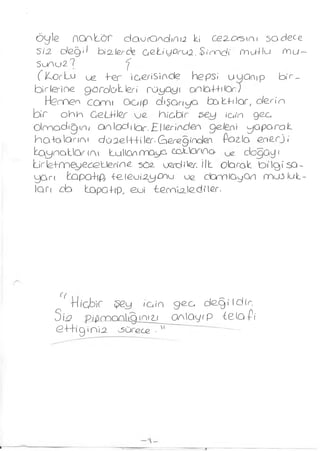 öyle nankör davrandınız ki cezasını sadece
siz değil bizlerde çekiyoruz. Şimdi mutlu mu-
sunuz?
(Korku ve ter içerisinde hepsi uyanıp bir-
birlerine gördükleri rüyayı anlattılar.)
Hemen camı açıp dışarıya baktılar, derin
bir ohh çektiler ve hiçbir şey için geç
olmadığını anladılar. Ellerinden geleni yaparak
hatalarını düzelttiler. Gereğinden fazla enerji
kaynaklarını kullanmaya ve doğayı
kirletmeyeceklerine söz verdiler. İlk olarak bilgisa-
yarı kapatıp, televizyonu ve damlayan musluk-
ları da kapatıp, evi temizlediler.
"Hiçbir şey için geç değildir.
Siz pişmanlığınızı anlayıp telafi
ettiğiniz sürece."